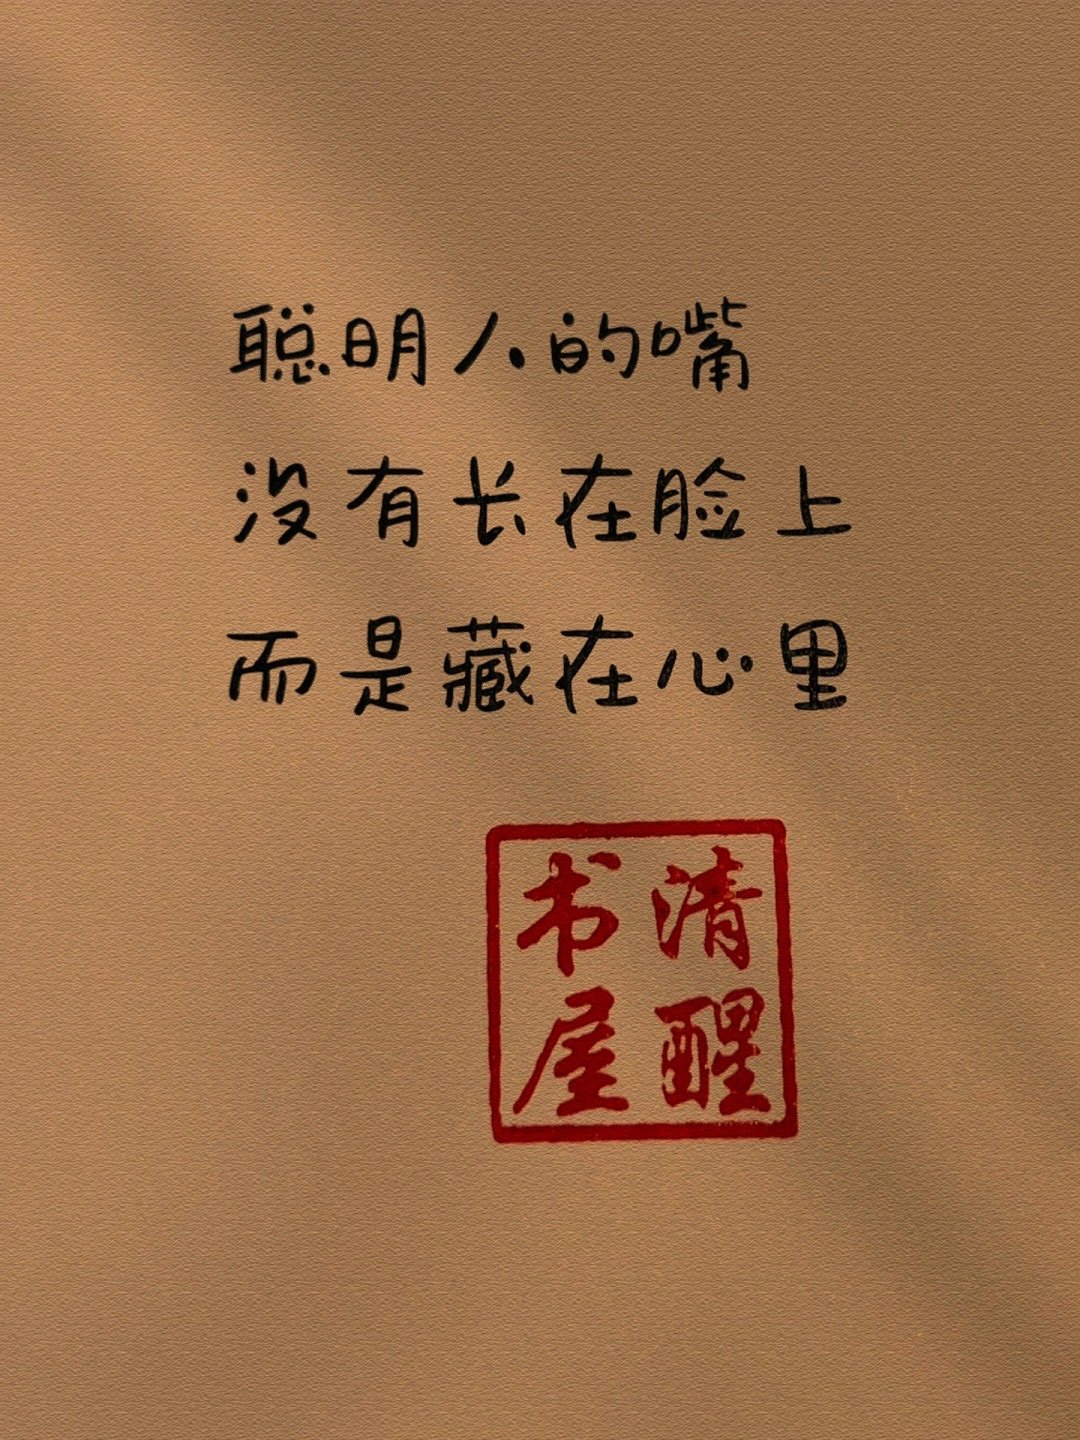 聪明人的嘴
没有长在脸上
而是藏在心里
清醒
书屋